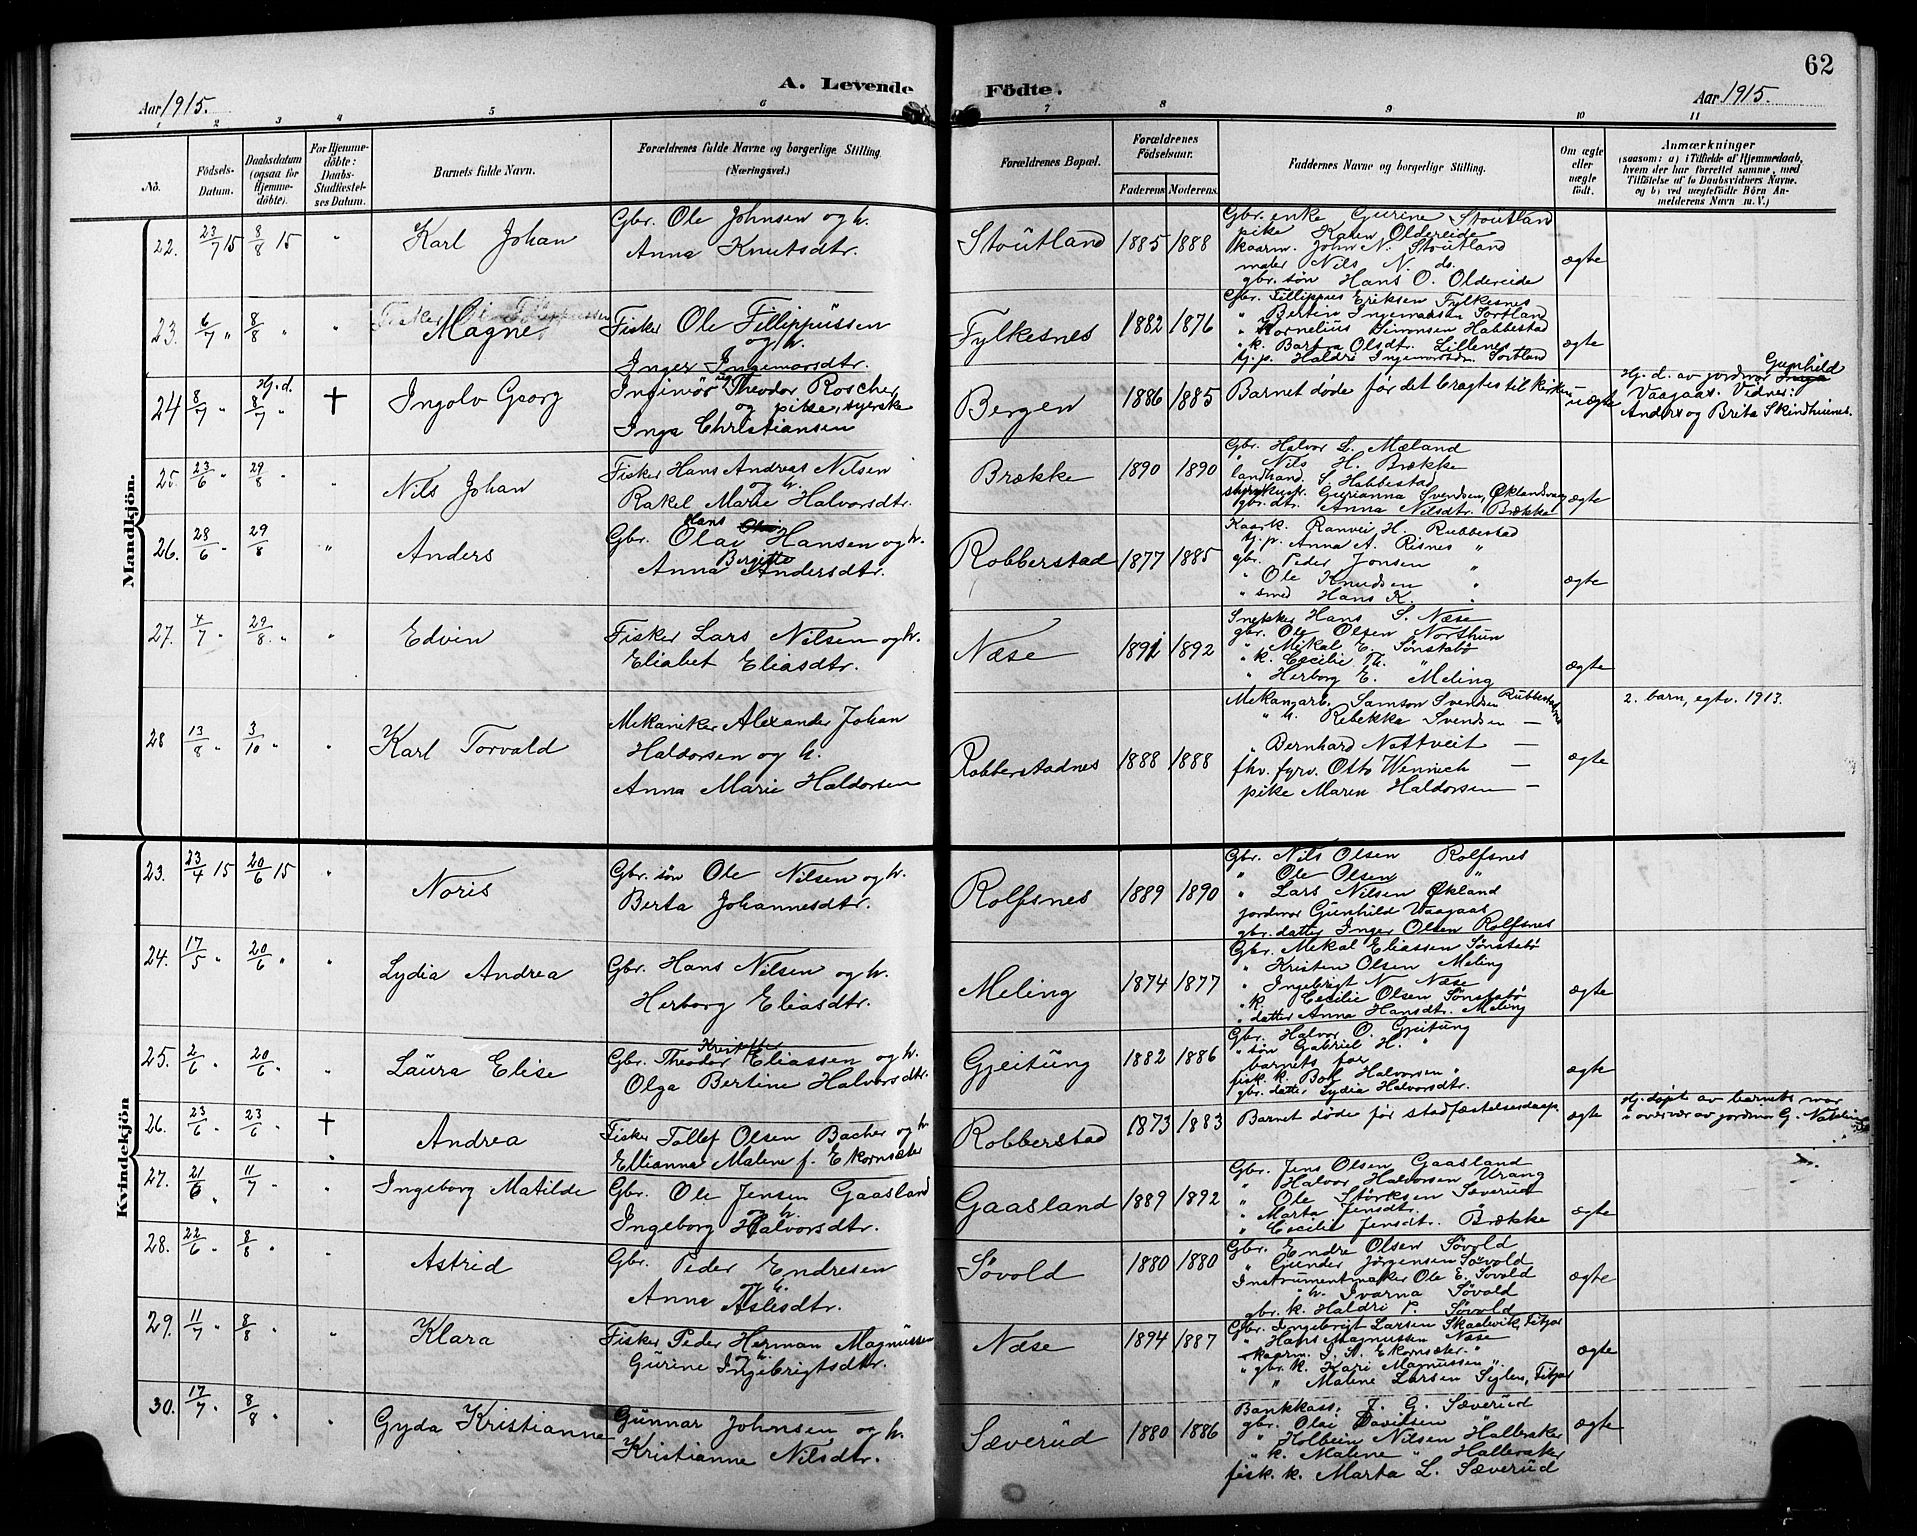 62
A. Levende Födte.
Aar 1915.
Aar 1915.
1 2 3 4 5 6 7 8 9 10 11
No.
Födsels-Datum.
Daabsdatum (ogsaa for Hjemmedöbte).
For Hjemmedöbte: Daabs-Stadfæstelses Datum.
Barnets fulde Navn.
Forældrenes fulde Navne og borgerlige Stilling (Næringsvei.)
Forældrenes Bopæl.
Forældrenes Födselsaar.
Faderens Moderens
Faddernes Navne og borgerlige Stilling.
Om ægte eller uægte födt.
Anmærkninger
(saasom: a) i Tilfælde af Hjemmedaab, hvem der har forrettet samme, med Tilföielse af to Daabsvidners Navne. og b) ved uægtefödte Börn Anmelderens Navn m. V.)
Mandkjön.
22. 23/7 15 8/8 15 " Karl Johan
Gbr. Ole Johnsen og h.
Anna Knutsdtr.
Stoutland 1885 1888
Gbr. enke Gurine Stoutland
pike Karen Oldereide
kaarm. John N. Stoutland
maler Nils N. ds.
gbr. søn Hans O. Oldereide
ægte
23. 6/7 " 8/8 " " Magne
Fisker Ole Fillippussen
og h.
Inger Ingemarsdtr.
Fylkesnes 1882 1876
Gbr. Fillippus Eriksen Fylkesnes
" Bertin Ingemarsen Sortland
" Kornelius Simonsen Habbestad
" k. Bartra Olsdtr. Lillenes
tj. p. Haldri Ingemarsdtr. Sortland
ægte
24 8/7 " Hj. d. 8/7 " † Ingolv Georg
Theodor Roscher
og pike, syerske
Inga Christiansen
Bergen 1886 1885
Barnet døde før det bragtes til kirken
uægte
Hj. d. av jordmor Gunhild
Vaagaas. Vidner:
Anders og Brita Skindhuenes.
25. 23/6 " 29/8 " " Nils Johan
Fisker Hans Andreas Nilsen
og h.
Rakel Marie Halvorsdtr.
Brække 1890 1890
Gbr. Halvor L. Mæland
" Nils H. Brække
landhand. S. Habbestad
Gurianna Svendsen, Øklandsvaag
gbr. dtr. Anna Nilsdtr. Brække
ægte
26. 28/6 " 29/8 " Anders
Gbr. Olai Hans Hansen og h.
Anna Birgitte Andersdtr.
Robberstad 1877 1885
Kaark. Ranvei H. Rubbestad
tj. p. Anna A. Risnes "
gbr. Peder Jonsen "
" Ole Knudsen "
" smed Hans K. "
ægte
27. 4/7 " 29/8 " " Edvin
Fisker Lars Nilsen og h.
Eliabet Eliasdtr.
Næse 1891 1892
Snekker Hans S. Næse
gbr. Ole Olsen Northun
" Mikal E. Sønstabø
" k. Cecilie Th. "
" Herborg E. Meling
ægte
28 13/8 " 3/10 " " Karl Torvald
Mekaniker Alexander Johan
Haldorsen og h.
Anna Marie Haldorsen
Robberstadnes 1888 1888
Mekan. arb. Samson Svendsen Rubbestadnes
" h. Rebekka Svendsen —
" Bernhard Nattveit —
fhv. fyrv. Otto Wennich —
pike Maren Haldorsen —
ægte
2. barn, egtv. 1913.
Kvindekjön
23. 23/4 15 20/6 15 " Noris
Gbr. søn Ole Nilsen og h.
Berta Johannesdtr.
Rolfsnes 1889 1890
Gbr. Nils Olsen Rolfsnes
" Ole Olsen "
" Lars Nilsen Økland
jordmor Gunhild Vaagaas
gbr. datter Inger Olsen Rolfsnes
24. 17/5 " 20/6 " " Lydia Andrea
Gbr. Hans Nilsen og h.
Herborg Eliasdtr.
Meling 1874 1877
Gbr. Mekal Eliassen Sønstabø
" Kristen Olsen Meling
" Ingebrigt N. Næse
" k. Cecilie Olsen Sønstabø
" datter Anna Hansdtr. Meling
ægte
25. 2/6 " 20/6 " " Laura Elise
Gbr. Theodor Eliassen og h.
Olga Bertine Halvorsdtr.
Gjeitung 1882 1886
Gbr. Halvor O. Gjeitung
" søn Gabriel H. "
barnets far
fisk. k. Bolf Halvorsen "
gbr. datter Lydia Halvorsdtr.
ægte
26. 23/6 " 23/6 " † Andrea
Fisker Tollef Olsen Bacher og h.
Ellianna Malene f. Ekornsæter
Robberstad 1873 1883
Barnet døde før stadfæstelsesdaap.
ægte
Hj. døpt av barnets mor
i overvær av jordmor G.
27. 21/6 " 11/7 " " Ingeborg Matilde
Gbr. Ole Jensen Gaasland
og h.
Ingeborg Halvorsdtr.
Gaasland 1889 1892
Gbr. Jens Olsen Gaasland
" Halvor Halvorsen Urang
" Ole Størksen Sæverud
" Marta Jensdtr.
" Cecilie Jensdtr. Brække
ægte
28. 22/6 " 8/8 " " Astrid
Gbr. Peder Endresen
og h.
Anna Aslesdtr.
Søvold 1880 1880
Gbr. Endre Olsen Søvold
" Gunder Jørgensen Søvold
Instrumentmaker Ole E. Søvold
" h. Ivarna Søvold
gbr. k. Haldri P. Søvold
ægte
29. 11/7 " 8/8 " " Klara
Fisker Peder Herman Magnussen
og h.
Gurine Ingebrigtsdtr.
Næse 1894 1887
Gbr. Ingebrigt Larsen Skaalevik, Fitjar
" Hans Magnussen Næse
kaarm. J. A. Ekornsæter "
" gbr. k. Kari Magnussen "
" Malene Larsen Fitjar
ægte
30. 17/7 " 8/8 " " Gyda Kristianne
Gunnar Johnsen og h.
Kristianne Nilsdtr.
Sæverud 1880 1886
Bankkass. J. G. Sæverud
gbr. Olai Davidsen
" Kolbein Nilsen Halleraker
" k. Malene " Halleraker
fisk. k. Marta L. Sæverud
ægte